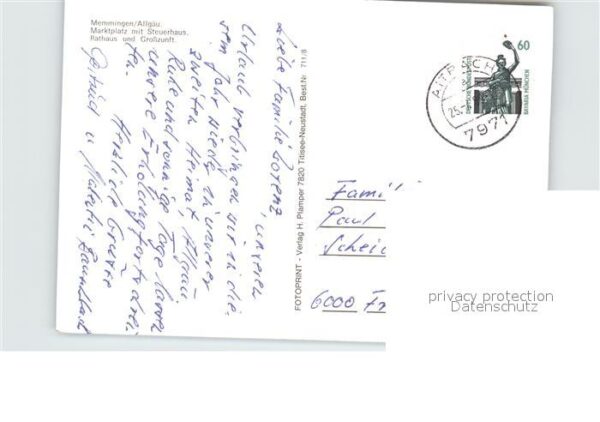 Memmingen/Allgäu.
Marktplatz mit Steuerhaus,
Rathaus und Großzunft.
Liebe Familie Lorenz,
unseren
Urlaub verbringen wir in die-
sem Jahr wieder in unserer
zweiten Heimat, Allgäu.
Ruhe und sonnige Tage lassen
unsere Erholung fortschrei-
ten.
Herzliche Grüsse
Gertrud u.
FOTOPRINT - Verlag H. Plamper 7820 Titisee-Neustadt, Best.Nr. 711/8
60
DEUTSCHE BUNDESPOST
BAVARIA MÜNCHEN
7971
Famil
Paul
Scheid
6000 Fr
privacy protection
Datenschutz